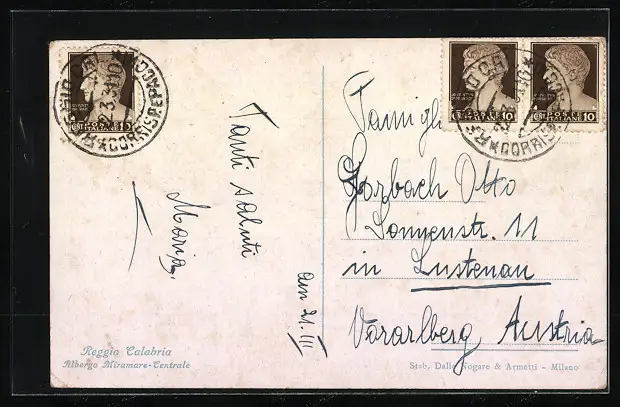 Tanti saluti
Maria,
am 21. III
Reggio Calabria
Albergo Miramare-Centrale
POSTE
ITALIANE
10
POSTE
ITALIANE
10
Otto
Sonnenstr. 11
in Lustenau
Vorarlberg Austria
Stab. Dalle Nogare & Armetti - Milano